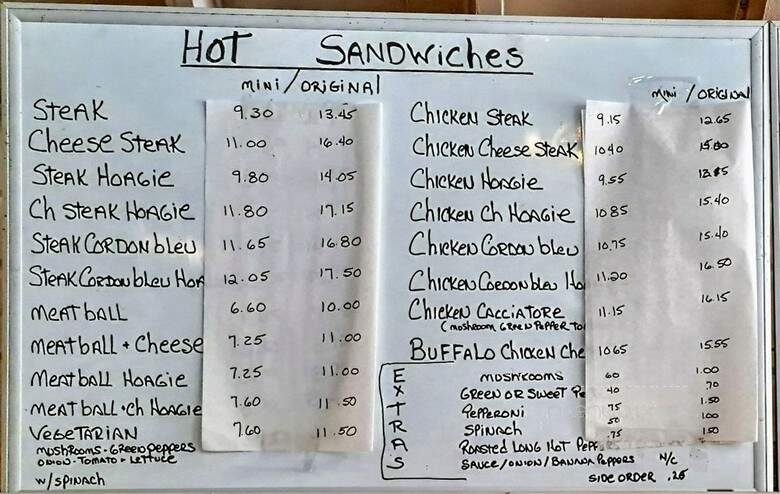 Hot Sandwiches
Mini / Original
Steak 9.30 13.45
Cheese Steak 11.00 16.40
Steak Hoagie 9.80 14.05
Ch Steak Hoagie 11.80 17.15
Steak Cordon bleu 11.65 16.80
Steak Cordon bleu Hoa 12.05 17.50
Meatball 6.60 10.00
Meatball + Cheese 7.25 11.00
Meatball Hoagie 7.25 11.00
Meatball + ch Hoagie 7.60 11.50
Vegetarian 7.60 11.50
Mushrooms - Green Peppers
Onion - Tomato - Lettuce
w/spinach
Mini / Original
Chicken Steak 9.15 12.65
Chicken Cheese Steak 10.40
Chicken Hoagie 9.55
Chicken Ch Hoagie 10.85 15.40
Chicken Cordon bleu 10.75 15.40
Chicken Cordon bleu Ho 11.20 16.50
Chicken Cacciatore 11.15 16.15
(mushroom Green Pepper To
Buffalo Chicken Che 10.65 15.55
EXTRAS
Mushrooms 60 1.00
Green or Sweet Pe 40 70
Pepperoni 75 1.50
Spinach 50 1.00
Roasted Long Hot Pepp .75 1.50
Sauce/Onion/Banana Peppers N/C
Side order .25